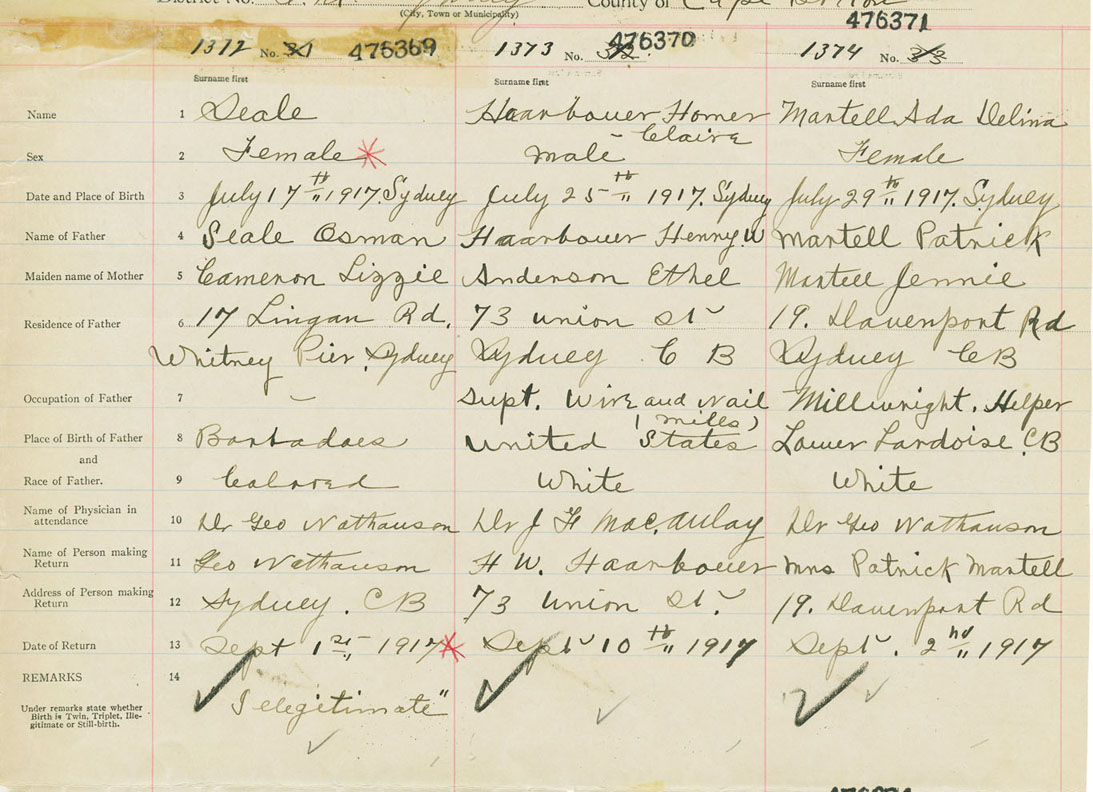 District No. County of Cape Breton
(City, Town or Municipality)
476371
1372 No. 31 476369 1373 No. 32 476370 1374 No. 33
Surname first Surname first Surname first
Name 1 Seale Haarbauer Homer Martell Ada Delina
- Claire
Sex 2 Female * male Female
Date and Place of Birth 3 July 17th 1917. Sydney July 25th 1917. Sydney July 29th 1917. Sydney
Name of Father 4 Seale Osman Haarbauer Henry. W Martell Patrick
Maiden name of Mother 5 Cameron Lizzie Anderson Ethel Martell Jennie
Residence of Father 6 17 Lingan Rd. 73 union St 19. Davenport Rd
Whitney Pier, Sydney Sydney C B Sydney C B
Occupation of Father 7 - Supt. Wire and Nail Millwright. Helper
(mills)
Place of Birth of Father 8 Barbadoes United States Lower Lardoise. CB
and
Race of Father. 9 Colored White White
Name of Physician in
attendance 10 Dr Geo Nathanson Dr J F MacAulay Dr Geo Nathanson
Name of Person making
Return 11 Geo Nathanson H W. Haarbauer Mrs Patrick Martell
Address of Person making
Return 12 Sydney. CB 73 Union St. 19. Davenport Rd
Date of Return 13 Sept 1st 1917 * Sept 10th 1917 Sept. 2nd 1917
REMARKS 14
Under remarks state whether
Birth is Twin, Triplet, Ille-
gitimate or Still-birth.
Illegitimate"